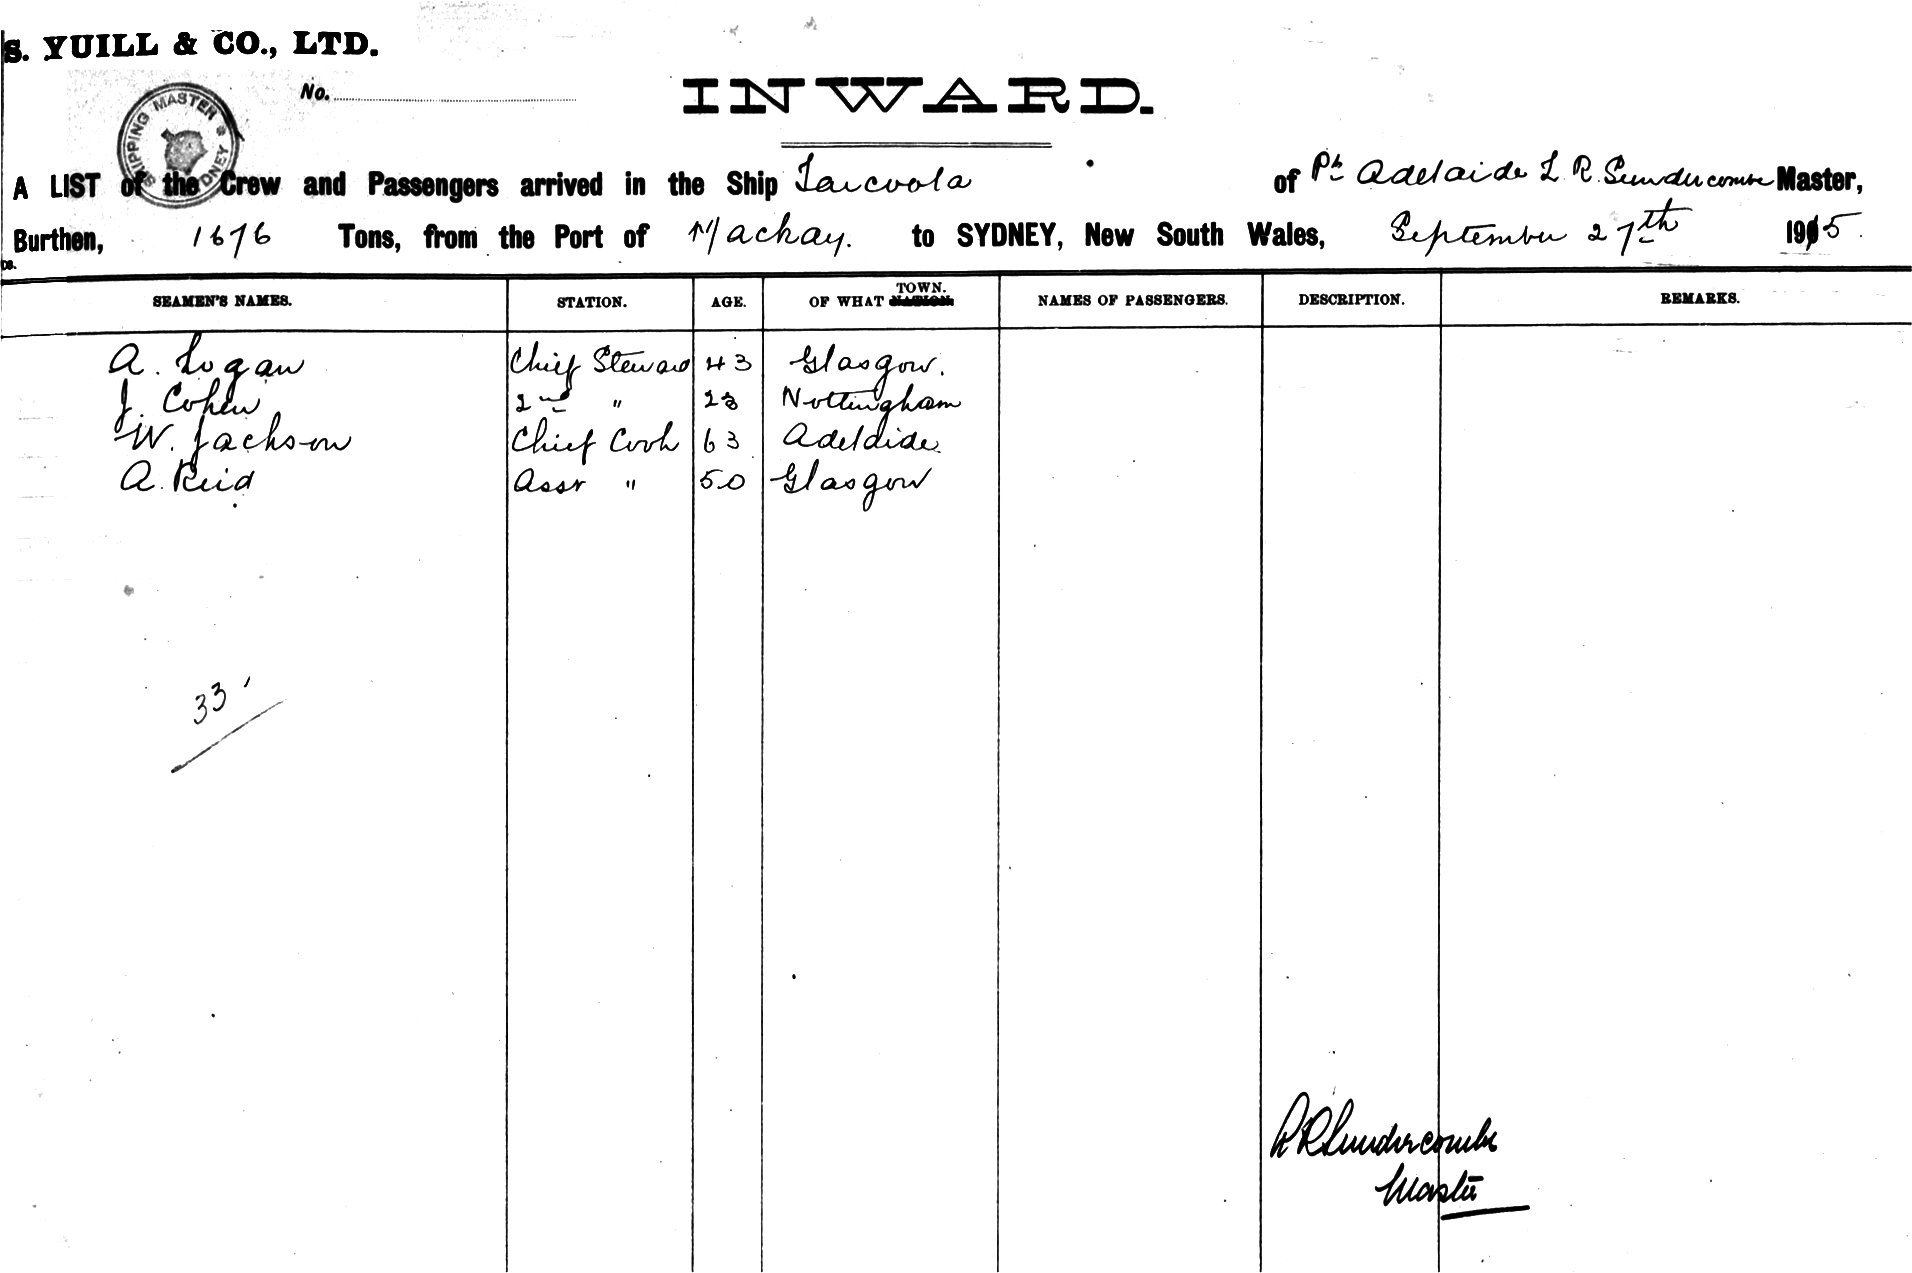 S. YUILL & CO., LTD.
No.
INWARD.
SHIPPING MASTER SYDNEY
A LIST of the Crew and Passengers arrived in the Ship Tarcoola of Pt Adelaide L R. Sundercombe Master,
Burthen, 1676 Tons, from the Port of Mackay. to SYDNEY, New South Wales, September 27th 1915.
SEAMEN'S NAMES. STATION. AGE. OF WHAT TOWN. NATION. NAMES OF PASSENGERS. DESCRIPTION. REMARKS.
A. Logan Chief Steward 43 Glasgow.
J. Cohen 2nd " 23 Nottingham
W. Jackson Chief Cook 63 Adelaide
A. Reid Asst " 50 Glasgow
33
R Sundercombe
Master